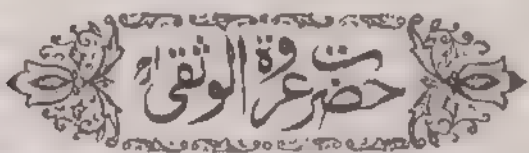 حضرت عروة الوثقیؒ